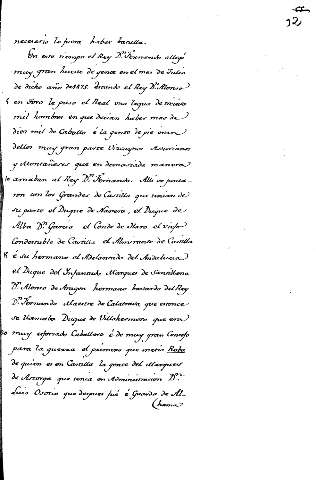 12
necesario lo fuera haber batalla.
En este tiempo el Rey Dn. Fernando allegó
muy gran hueste de gente en el mes de Julio
de dicho año de 1475. estando el Rey Dn. Alonso
en Toro le puso el Real una legua de treinta
mil hombres en que decian haber mas de
diez mil de Caballo é la gente de pie eran
dellos muy gran parte Vizcaynos Asturianos
y Montañeses que en demasiada manera
amaban al Rey Dn. Fernando. Alli se junta
ron con los Grandes de Castilla que tenian de
su parte el Duque de Naxera, el Duque de
Alba Dn. Garcia el Conde de Haro el
Condestable de Castilla el Almirante de Castilla
é su hermano el Adelantado del Andalucia
el Duque del Infantado Marques de Santillana
Dn. Alonso de Aragon hermano bastardo del Rey
Dn. Fernando Maestre de Calatrava que entonce
se llamaba Duque de Villahermosa que era
muy esforzado Caballero é de muy gran Consejo
para la guerra el primero que metio Ruba
de quien es en Castilla la gente del Marques
de Astorga que tenia en Administracion Dn.
Luis Osorio que despues fué é Grando de Al-
(hama